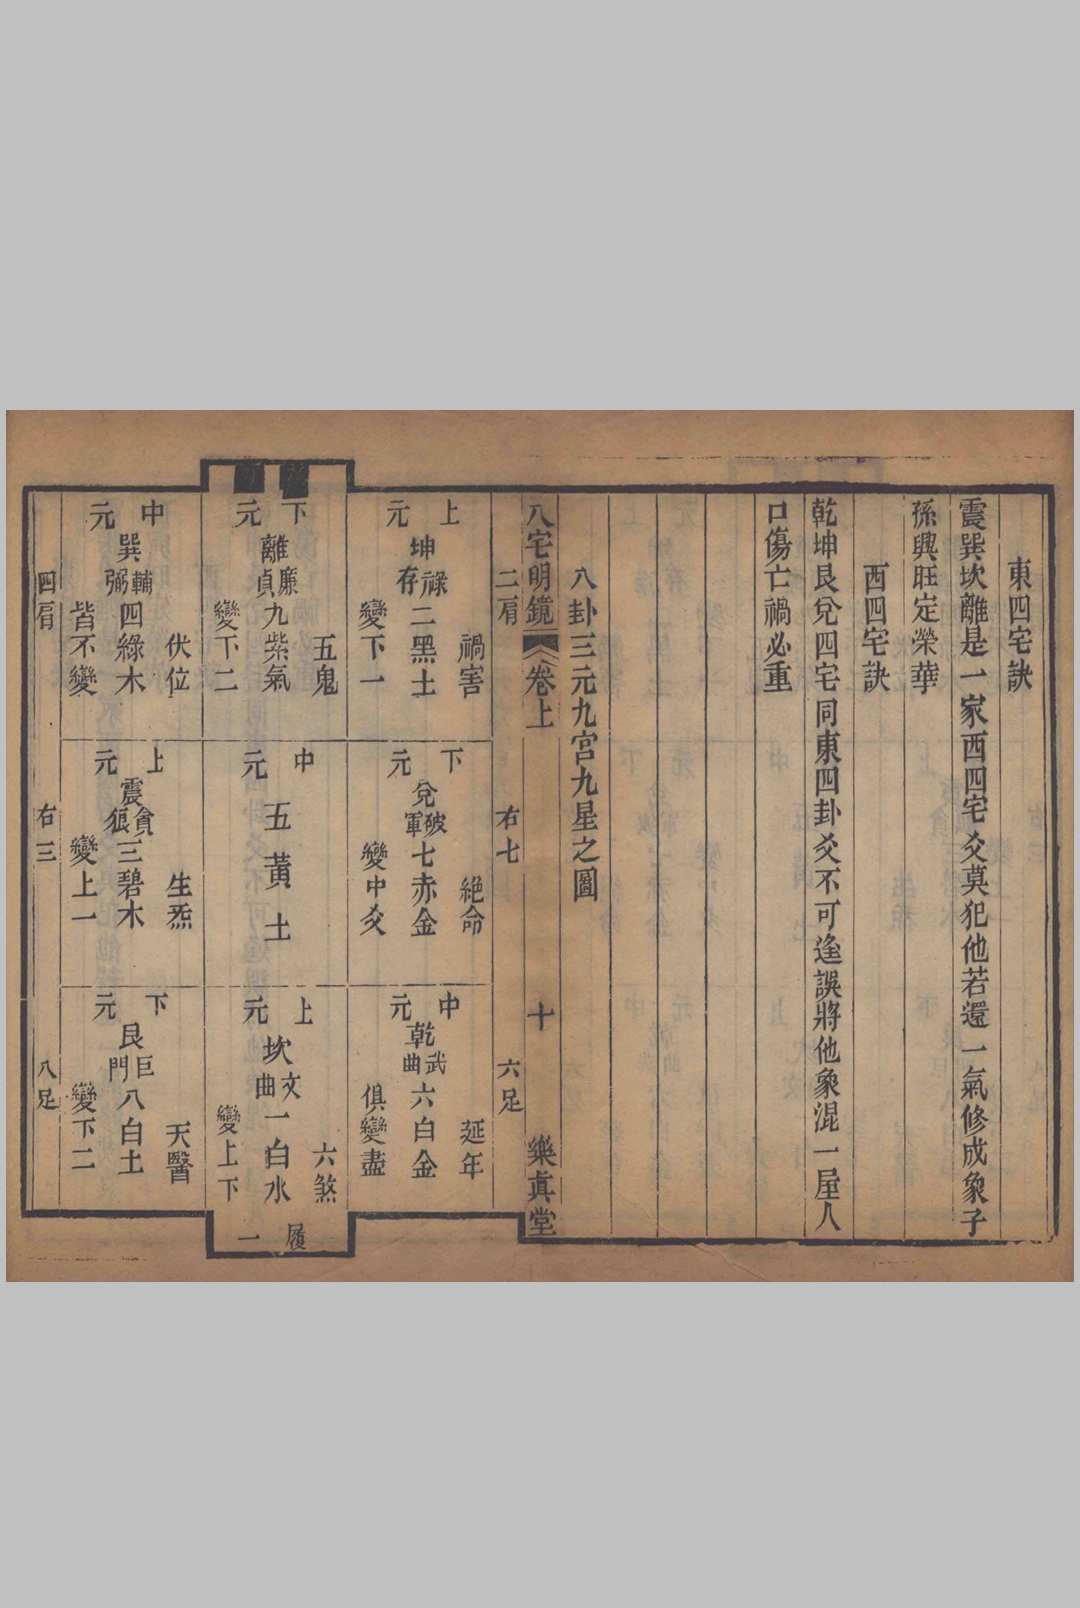 東四宅訣
震巽坎離是一家西四宅爻莫犯他若還一氣修成象子
孫興旺定榮華
西四宅訣
乾坤艮兌四宅同東四卦爻不可逢誤將他象混一屋人
口傷亡禍必重
八卦三元九宮九星之圖
八宅明鏡 卷上 十 樂真堂
二肩 右七 六足
上元
禍害
坤祿存二黑土
變下一
下元
絕命
兌破軍七赤金
變中爻
中元
延年
乾武曲六白金
俱變盡
下元
五鬼
離廉貞九紫氣
變下二
中元
五黃土
上元
六煞
坎文曲一白水
變上下
履一
中元
伏位
巽輔弼四綠木
皆不變
上元
生炁
震貪狼三碧木
變上一
下元
天醫
艮巨門八白土
變下二
四肩 右三 八足